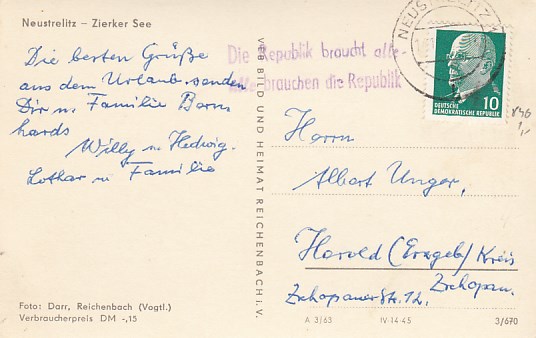 Neustrelitz – Zierker See
Die besten Grüße
aus dem Urlaube senden
Dir u. Familie Bern
hards
Willy u. Hedwig.
Lothar u Familie
Foto: Darr, Reichenbach (Vogtl.)
Verbraucherpreis DM -,15
VEB BILD UND HEIMAT REICHENBACH i. V.
Die Republik braucht alle -
Alle brauchen die Republik
NEUSTRELITZ
10
DEUTSCHE
DEMOKRATISCHE REPUBLIK
846
1,-
Herrn
Albert Unger,
Harold (Erzgeb) Kreis
Zschopau.
Zschopauer Str. 12.
A 3/63 IV-14-45 3/670